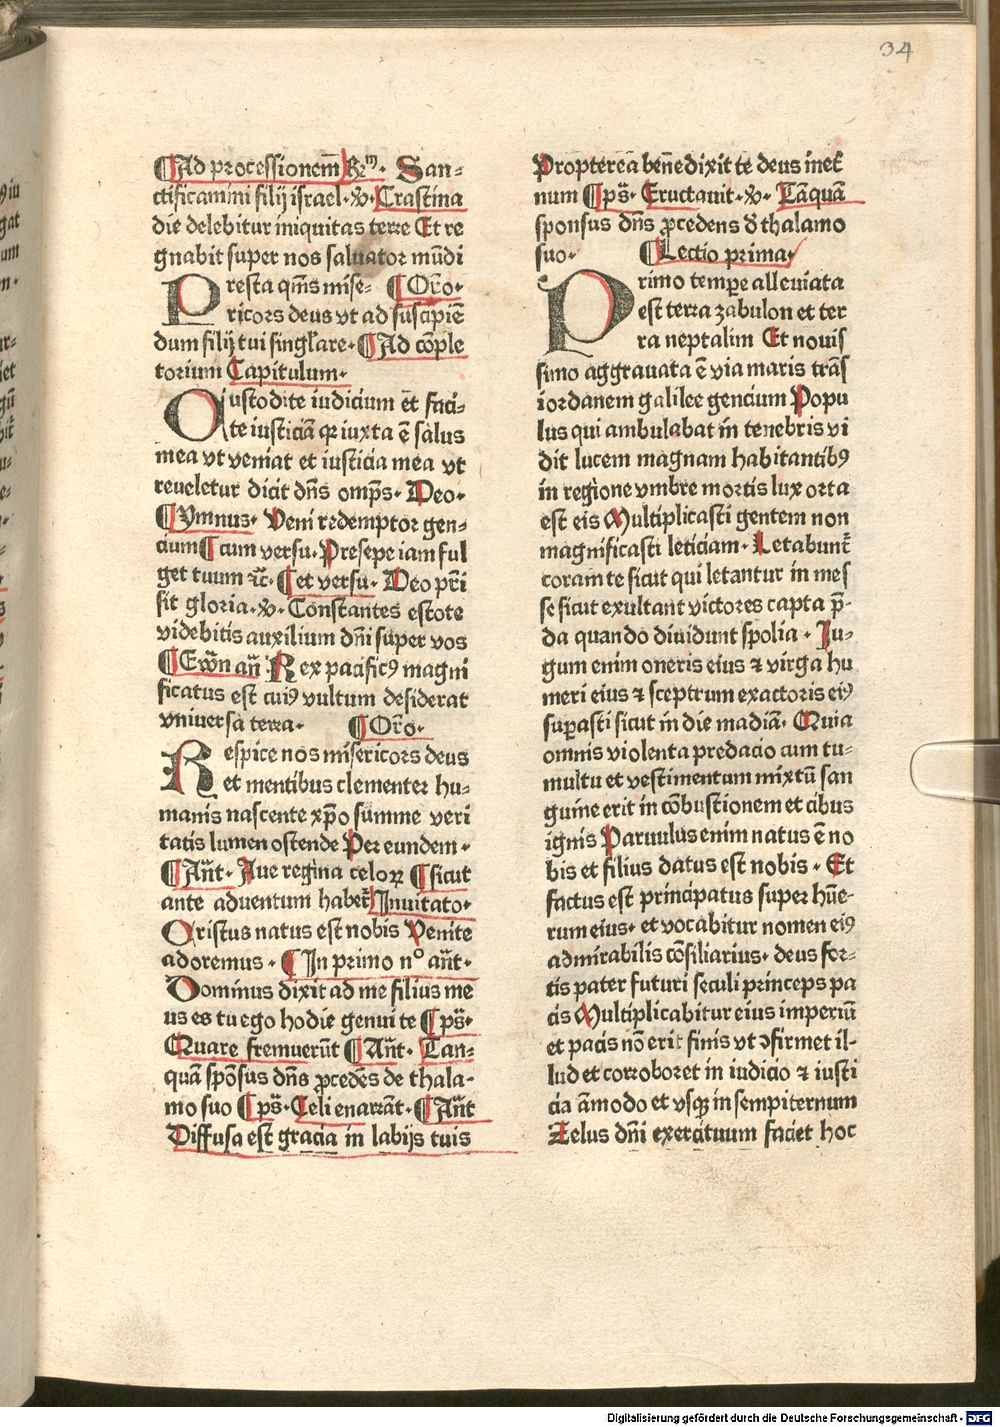 34
¶Ad processionem̄ R̄m. San-
ctificamini filij israel. v. Crastina
die delebitur iniquitas terre Et re
gnabit super nos saluator mūdi
Presta qm̄s mise- ¶Oro.
ricors deus vt ad suscipiē
dum filij tui singl'are. ¶Ad cōple
torium Capitulum.
Custodite iudicium et faci-
te iusticiā qr iuxta ē salus
mea vt veniat et iusticia mea vt
reueletur dicit dn̄s omp̄s. Deo.
¶Ymnus. Veni redemptor gen-
cium ¶cum versu. Presepe iam ful
get tuum zc̄. ¶et versu. Deo pr̄i
sit gloria. v. Constantes estote
videbitis auxilium dn̄i super vos
¶Ewn̄ an̄ Rex pacificꝰ magni
ficatus est cuiꝰ vultum desiderat
vniuersa terra. ¶Oro.
Respice nos misericors deus
et mentibus clementer hu-
manis nascente xp̄o summe veri
tatis lumen ostende Per eundem.
¶An̄t. Aue regina celoꝝ ¶sicut
ante aduentum habet̄ Inuitato.
Cristus natus est nobis Venite
adoremus. ¶In primo nº an̄t.
Dominus dixit ad me filius me
us es tu ego hodie genui te ¶ps̄.
Quare fremuerūt ¶An̄t. Tan-
quā spōsus dn̄s ꝓcedēs de thala-
mo suo ¶ps̄. Celi enarrāt. ¶An̄t
Diffusa est gracia in labijs tuis
Propterea benedixit te deus inet̄
num ¶ps̄. Eructauit. v. Tāquā
sponsus dn̄s ꝓcedens d̄ thalamo
suo. ¶Lectio prima.
Primo tempere alleuiata
est terra zabulon et ter
ra neptalim Et nouis
simo aggrauata ē via maris trās
iordanem galilee gencium Popu
lus qui ambulabat in tenebris vi
dit lucem magnam habitantibꝰ
in regione vmbre mortis lux orta
est eis Multiplicasti gentem non
magnificasti leticiam. Letabunt̄
coram te sicut qui letantur in mes
se sicut exultant victores capta p̄-
da quando diuidunt spolia. Iu-
gum enim oneris eius ⁊ virga hu
meri eius ⁊ sceptrum exactoris eiꝰ
suꝑasti sicut in die madiā. Quia
omnis violenta predacio cum tu-
multu et vestimentum mixtū san
guine erit in cōbustionem et cibus
ignis Paruulus enim natus ē no
bis et filius datus est nobis. Et
factus est principatus super hūe-
rum eius. et vocabitur nomen eiꝰ
admirabilis cōsiliarius. deus for-
tis pater futuri seculi princeps pa
cis Multiplicabitur eius imperiū
et pacis nō erit finis vt ꝯfirmet il-
lud et corroboret in iudicio ⁊ iusti
cia āmodo et vsqꝫ in sempiternum
Zelus dn̄i exercituum faciet hoc
Digitalisierung gefördert durch die Deutsche Forschungsgemeinschaft - DFG